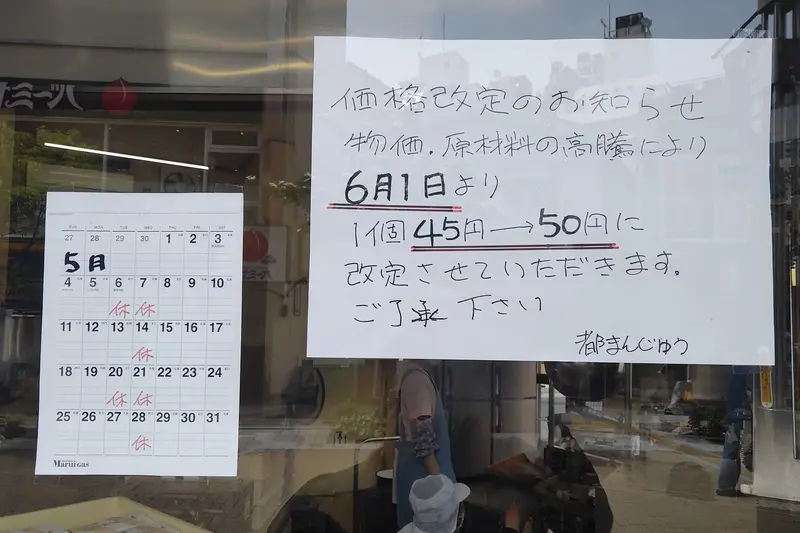 価格改定のお知らせ
物価.原材料の高騰により
6月1日より
1個 45円→50円に
改定させていただきます。
ご了承下さい
都まんじゅう
SUN MON TUE WED THU FRI SAT
27 28 29 30 1 2 3
5月
4 5 6 7 8 9 10
休 休
11 12 13 14 15 16 17
休
18 19 20 21 22 23 24
休 休
25 26 27 28 29 30 31
休
Maruigas